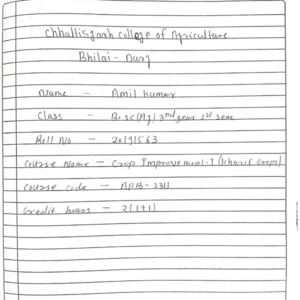 Chhattisgarh College of Agriculture
Bhilai - Durg
Name - Amil Kumar
Class - B.sc(Ag) 3rd year 1st sem
Roll No - 20191563
Course Name - Crop Improvement-I (Kharif Crops)
Course code - APB-5311
Credit hours - 2(1+1)